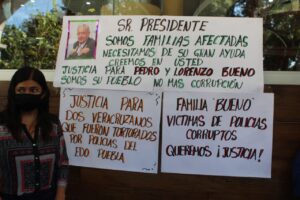 SR. PRESIDENTE
SOMOS FAMILIAS AFECTADAS
NECESITAMOS DE SU GRAN AYUDA
CREEMOS EN USTED
JUSTICIA PARA PEDRO Y LORENZO BUENO
SOMOS SU PUEBLO NO MAS CORRUPCIÓN
JUSTICIA PARA
DOS VERACRUZANOS
QUE FUERON TORTURADOS
POR POLICIAS DEL
EDO PUEBLA
FAMILIA "BUENO"
VICTIMAS DE POLICIAS
CORRUPTOS
QUEREMOS ¡JUSTICIA!